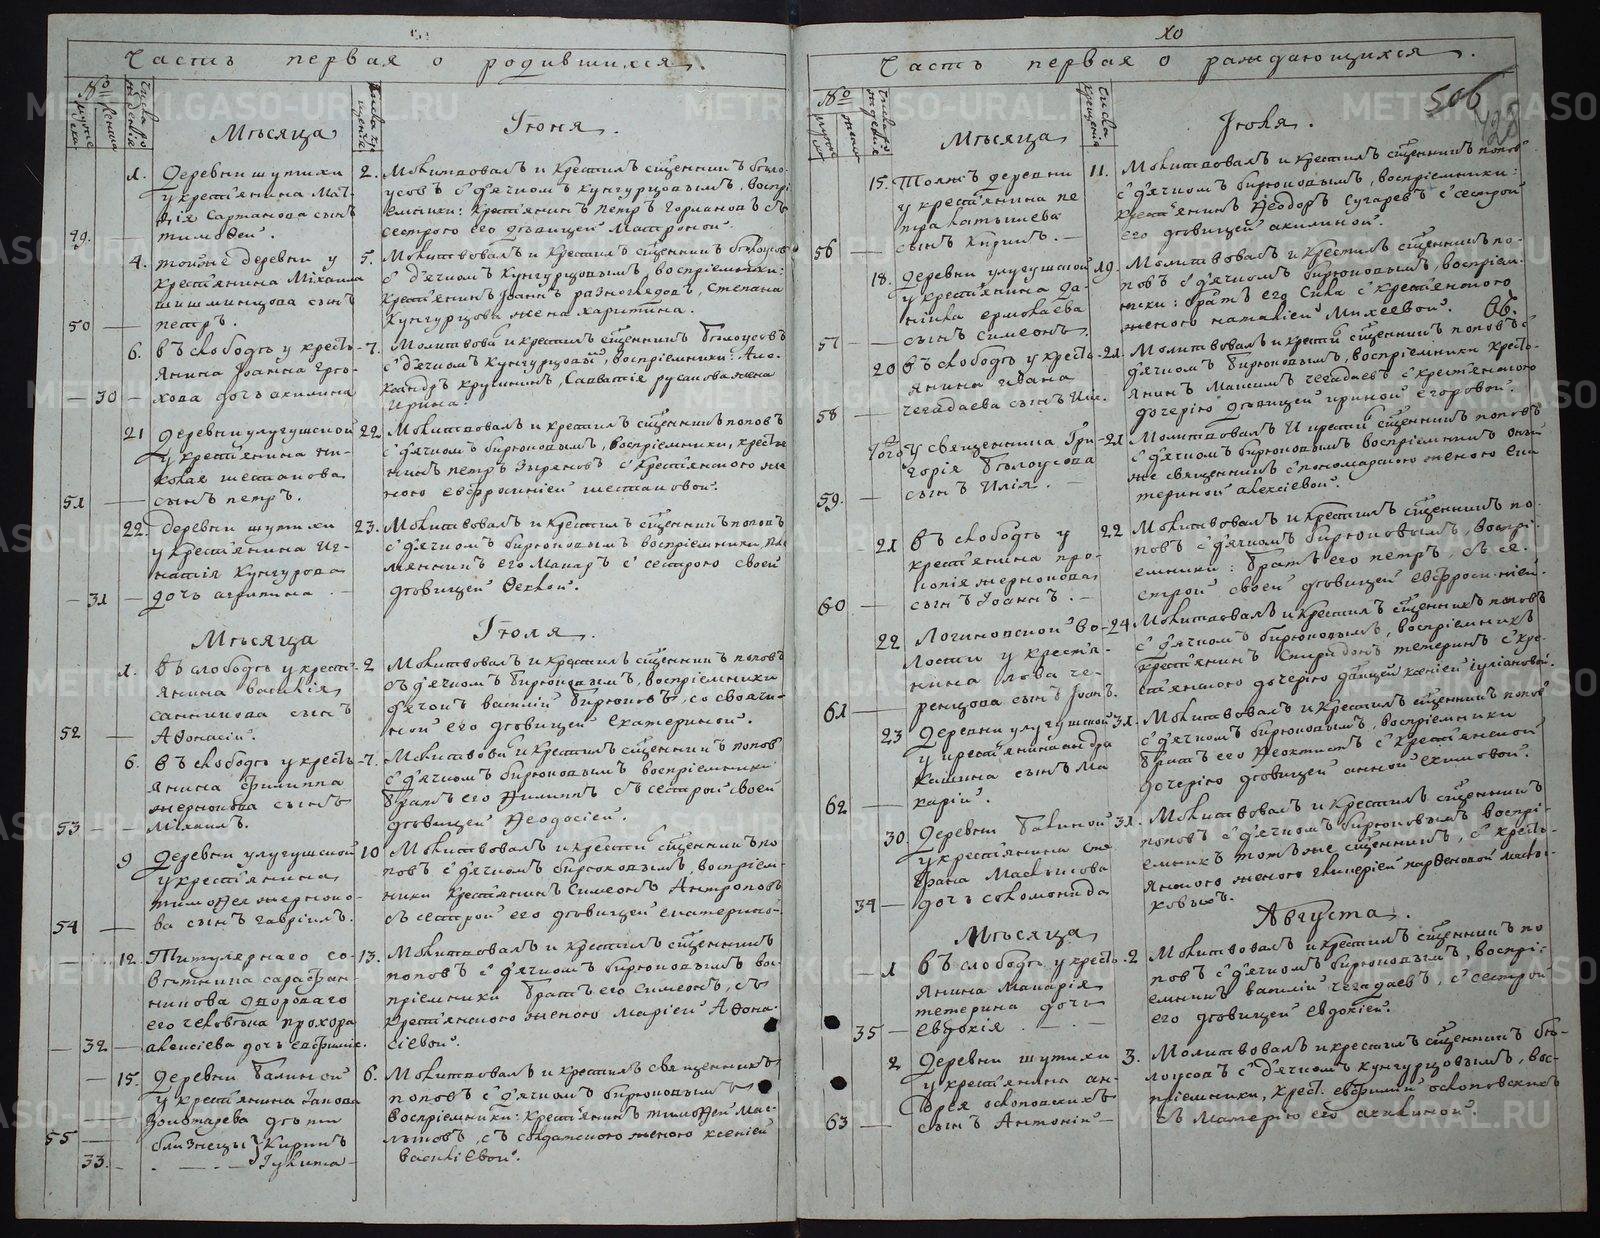 Часть первая о родившихся.
№
Мѣсяца Іюня.
1. Деревни шутихи
у крестьянина Мат-
ѳія Сартакова сынъ
49. — тимоѳей.
2. Молитвовалъ и крестилъ сщенникъ бѣло-
усовъ с дьячкомъ кунгурцовымъ, воспрі-
емники: крестьянинъ петръ съ
сестрою его дѣвицей Матроной.
4. тойже деревни у
крестьянина Михаила
шишминцова сынъ
50 — петръ.
5. Молитвовалъ и крестилъ сщенникъ бѣлоусовъ
с дьячкомъ кунгурцовымъ, воспріемники:
крестьянинъ Іоаннъ разноглядовъ, степана
кунгурцова жена харитина.
6. въ слободѣ у кресть-
янина Іоанна
— 30 — дочь акилина
7. Молитвова и крестилъ сщенникъ бѣлоусовъ
с дьячкомъ кунгурцовы, воспріемники: Але-
ксандръ Савватія русакова жена
Ирина.
21 Деревни улугушской
у крестьянина ни-
колая шестакова
51 — сынъ петръ.
22. Молитвовалъ и крестилъ сщенникъ поповъ
с дьячкомъ бирюковымъ, воспріемники, крестья
нинъ петръ Зыряновъ с крестьянскою же
ною евфросиніей шестаковой.
22. деревни шутихи
у крестьянина Иг-
натія кунгурова
— 31 — дочь агрипина
23. Молитвовалъ и крестилъ сщенникъ поповъ
с дьячкомъ бирюковымъ воспріемники, пле
мянникъ его Макаръ с сестрою своей
дѣвицей Ѳеклой.
Мѣсяца Іюля.
1. въ слободѣ у кресть-
янина василія
санникова сынъ
52 — Аѳонасій.
2 Молитвовалъ и крестилъ сщенникъ поповъ
съ дьячкомъ бирюковымъ, воспріемники
дьячокъ василій бирюковъ, со своячи-
ной его дѣвицей Екатериной.
6. въ слободѣ у кресть-
янина филиппа
жернокова сынъ
53 — Михаилъ.
7. Молитвова и крестилъ сщенникъ поповъ
с дьячкомъ бирюковымъ воспріемники
братъ его Филиппъ съ сестрой своей
дѣвицей Ѳеодосіей.
9 Деревни улугушской
у крестьянина
тимоѳея жерноко-
54 — ва сынъ гавріилъ.
10 Молитвовалъ и крести сщенникъ по
повъ с дьячкомъ бирюковымъ, воспріем-
ники крестьянинъ Симеонъ Антроповъ
съ сестрой его дѣвицей екатерино-
12. Титулярнаго со-
вѣтника сарафан-
никова двороваго
его человѣка прохора
— 32 — алексіева дочь евфимія.
13. Молитвовалъ и крестилъ сщенникъ
поповъ с дьячкомъ бирюковымъ вос-
пріемники братъ его симеонъ, съ
крестьянскою женою маріей Аѳона-
сіевой.
15. Деревни балиной
у крестьянина Іакова
Зонотарева дѣти
55 — близнецы Кирикъ
33. — Іулита —
6. Молитвовалъ и крестилъ священникъ
поповъ с дьячкомъ бирюковымъ
воспріемники: крестьянинъ тимоѳей мас-
лыковъ, съ солдатскою женою ксеніей
василіевой.
ХО
Часть первая о раждающихся.
506
428
№
Мѣсяца Іюля.
15. Тояжъ деревни
у крестьянина пе
тра латышева
56 — сынъ кирилъ. —
11. Молитвовалъ и крестилъ сщенникъ поповъ
с дьячкомъ бирюковымъ, воспріемники:
крестьянинъ Ѳеодоръ Сугаревъ с сестрой
его дѣвицей акилиной.
18. Деревни улугушской
у крестьянина да-
ніила ермолаева
57 — сынъ Симеонъ.
19. Молитвовалъ и крестилъ сщенникъ по-
повъ с дьячкомъ бирюковымъ, воспріем-
ники: братъ его Сила с крестьянскою
женою наталіей Михеевой.
20 въ слободѣ у кресть-
янина ивана
58 — чегадаева сынъ Илі.
21 Молитвовалъ и крести сщенникъ поповъ с
дьячкомъ бирюковымъ, воспріемники кресть-
янинъ Максимъ чегадаевъ с крестьянскою
дочерію дѣвицей ириной Егоровой.
Того у священника Гри-
горія Бѣлоусова
59. — сынъ Илія. —
21 Молитвовалъ и крести сщенникъ поповъ
с дьячкомъ бирюковымъ воспріемникъ оный
же священникъ с пономарскою женою ека
териной алексіевой.
21 въ слободѣ у
крестьянина про-
копія жернокова
60 — сынъ Іоаннъ. —
22 Молитвовалъ и крестилъ сщенникъ по-
повъ с дьячкомъ бирюковымъ, воспрі-
емники: братъ его петръ, съ се-
строй своей дѣвицей евфросиніей.
22 Логиновской во-
лости у крестья-
нина лова че-
61 — репцова сынъ Іоанъ.
24. Молитвовалъ и крестилъ сщенникъ поповъ
с дьячкомъ бирюковымъ, воспріемникъ
крестьянинъ Спиридонъ тетеринъ с кре-
стьянскою дочерію двицей ксеніей іуліановой.
23 Деревни улугушской
у крестьянина андра
кашина сынъ Ма
62 — карій.
31. Молитвовалъ и крестилъ сщенникъ поповъ
с дьячкомъ бирюковымъ, воспріемники
братъ его Ѳеоктистъ с крестьянской
дочерію дѣвицей анной екимовой.
30. Деревни балиной
у крестьянина сте
фана Маслысова
34 — дочь соломонида
31. Молитвовалъ и крестилъ сщенникъ
поповъ с дьячкомъ бирюковымъ воспрі-
емникъ тотъ же сщенникъ, с кресть-
янскою женою гликеріей парѳеновой маслы-
ковыхъ.
Мѣсяца Августа.
1 въ слободѣ у кресть-
янина Макарія
тетерина дочь
35 — Евдокія. —
2 Молитвовалъ и крестилъ сщенникъ по
повъ с дьячкомъ бирюковымъ, воспрі-
емникъ василій чегадаевъ, с сестрой
его дѣвицей евдокіей.
2 Деревни шутихи
у крестьянина ан-
дрея осколовскихъ
63 — сынъ Антоній —
3. Молитвовалъ и крестилъ сщенникъ бѣ-
лоусовъ с дьячкомъ кунгурцовымъ, вос-
пріемники, крест. евфимій осколовскихъ
съ матерію его акилиной.